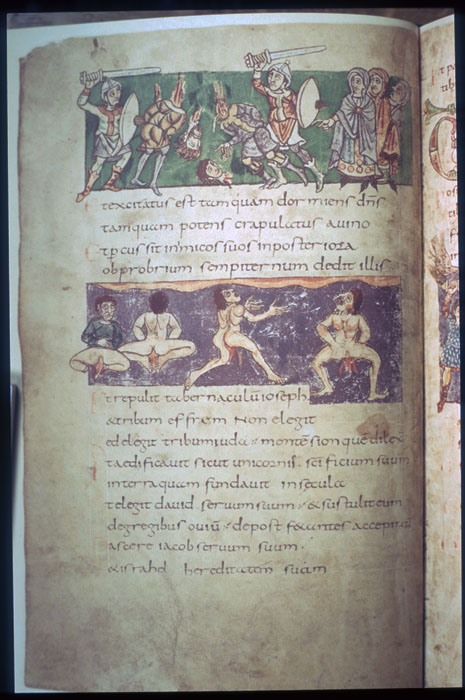 texcitatus est tamquam dormiens dn̄s
tamquam potens crapulatus auino
tpcussit inimicos suos inposteriora
obprobrium sempiternum dedit illis
trepulit tabernaculū ioseph
&tribum effrem non elegit
edelegit tribumiuda montē sion quē dilex
taedificauit sicut unicornis sc̄ificium suum
interra quam fundauit insecula
telegit dauid seruum suum & sustulit eum
degregibus ouiū depost foetantes accepit
ascere iacob seruum suum
&israhel hereditatem suam